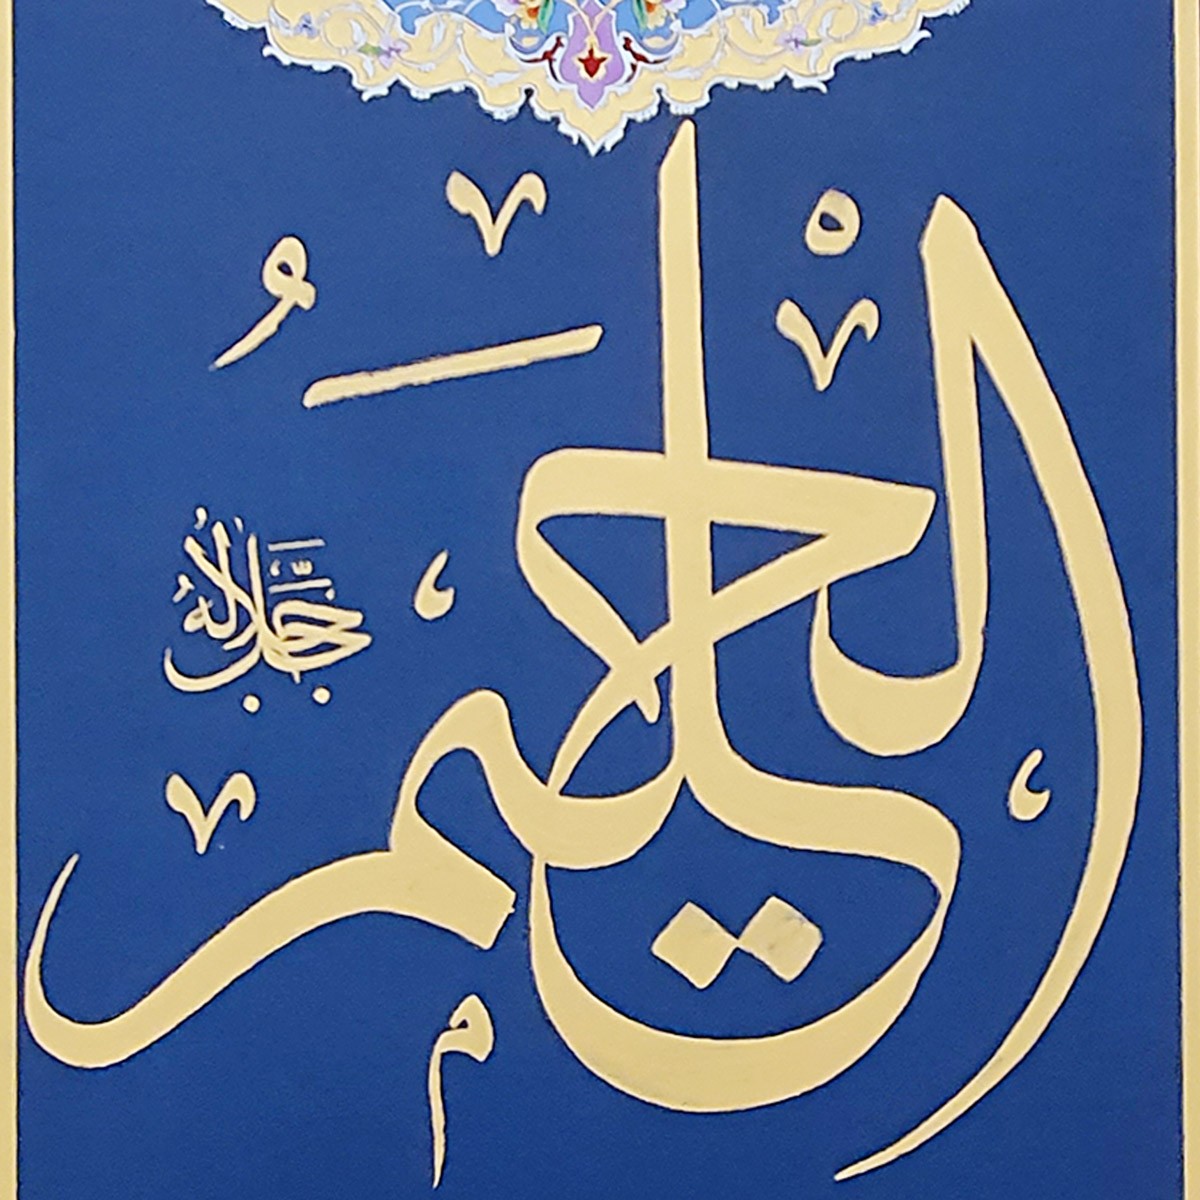 الْحَلیمُ
جَلَّ جَلالُهُ